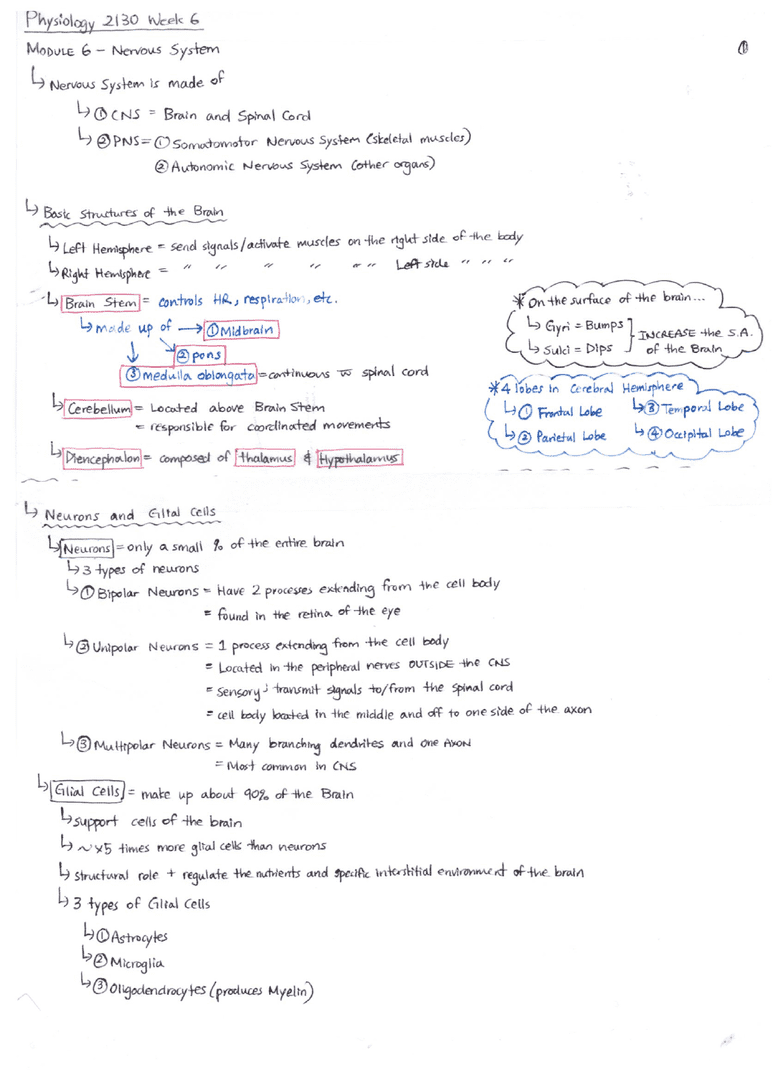 Physiology 2130 Week 6
MODULE 6 - Nervous System
①
↳ Nervous System is made of
↳ ① CNS = Brain and Spinal Cord
↳ ② PNS = ① Somatomotor Nervous System (skeletal muscles)
② Autonomic Nervous System (other organs)
↳ Basic Structures of the Brain
↳ Left Hemisphere = send signals/activate muscles on the right side of the body
↳ Right Hemisphere = " " " " " " Left side " " "
↳ Brain Stem = controls HR, respiration, etc.
↳ made up of → ① Midbrain
② pons
③ medulla oblongata = continuous w spinal cord
↳ Cerebellum = Located above Brain Stem
= responsible for coordinated movements
↳ Diencephalon = composed of thalamus & Hypothalamus
* On the surface of the brain...
↳ Gyri = Bumps
↳ Sulci = Dips
INCREASE the S.A.
of the Brain
* 4 lobes in Cerebral Hemisphere
↳ ① Frontal Lobe ↳ ③ Temporal Lobe
↳ ② Parietal Lobe ↳ ④ Occipital Lobe
↳ Neurons and Glial Cells
↳ Neurons = only a small % of the entire brain
↳ 3 types of neurons
↳ ① Bipolar Neurons = Have 2 processes extending from the cell body
= found in the retina of the eye
↳ ② Unipolar Neurons = 1 process extending from the cell body
= Located in the peripheral nerves OUTSIDE the CNS
= sensory; transmit signals to/from the spinal cord
= cell body located in the middle and off to one side of the axon
↳ ③ Multipolar Neurons = Many branching dendrites and one AXON
= Most common in CNS
↳ Glial Cells = make up about 90% of the Brain
↳ support cells of the brain
↳ ~ x5 times more glial cells than neurons
↳ structural role + regulate the nutrients and specific interstitial environment of the brain
↳ 3 types of Glial Cells
↳ ① Astrocytes
↳ ② Microglia
↳ ③ Oligodendrocytes (produces Myelin)